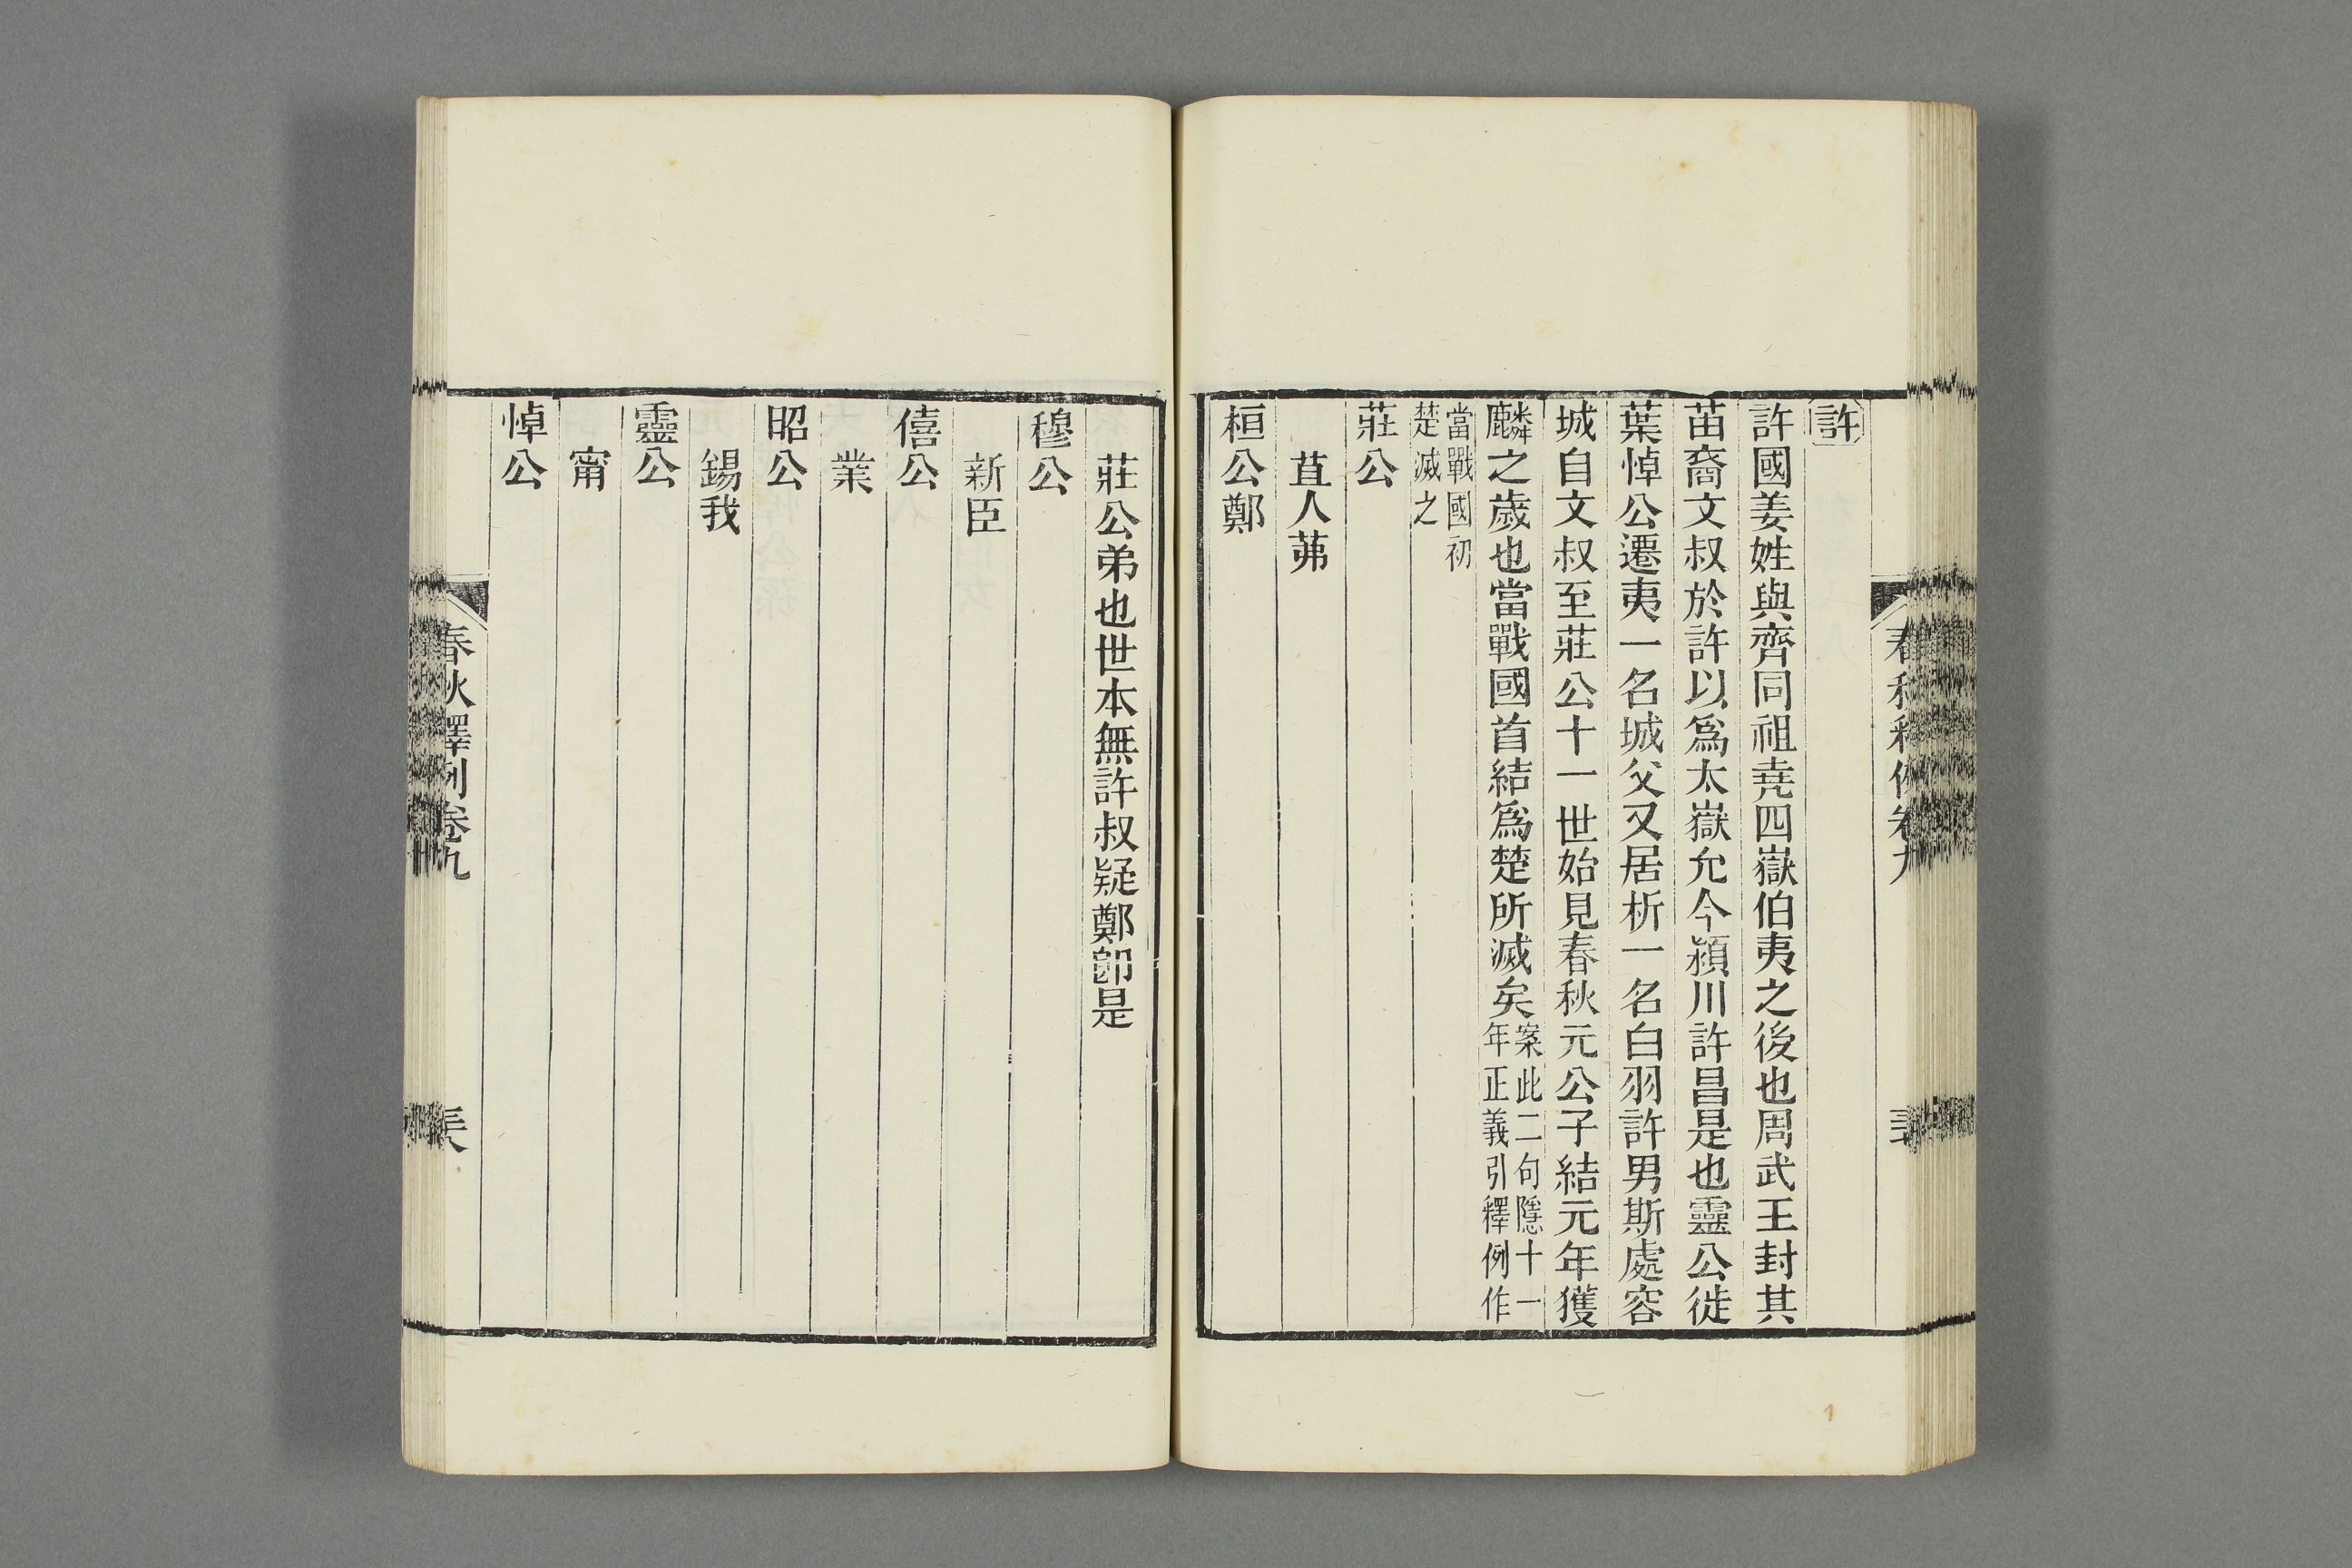 許
許國姜姓與齊同祖堯四嶽伯夷之後也周武王封其
苗裔文叔於許以為太嶽允今潁川許昌是也靈公徙
葉悼公遷夷一名城父又居析一名白羽許男斯處容
城自文叔至莊公十一世始見春秋元公子結元年獲
麟之歲也當戰國首結為楚所滅矣案此二句隱十一
年正義引釋例作
當戰國初
楚滅之
莊公
苴人茀
桓公鄭
莊公弟也世本無許叔疑鄭卽是
穆公
新臣
僖公
業
昭公
錫我
靈公
甯
悼公
春秋釋例卷九